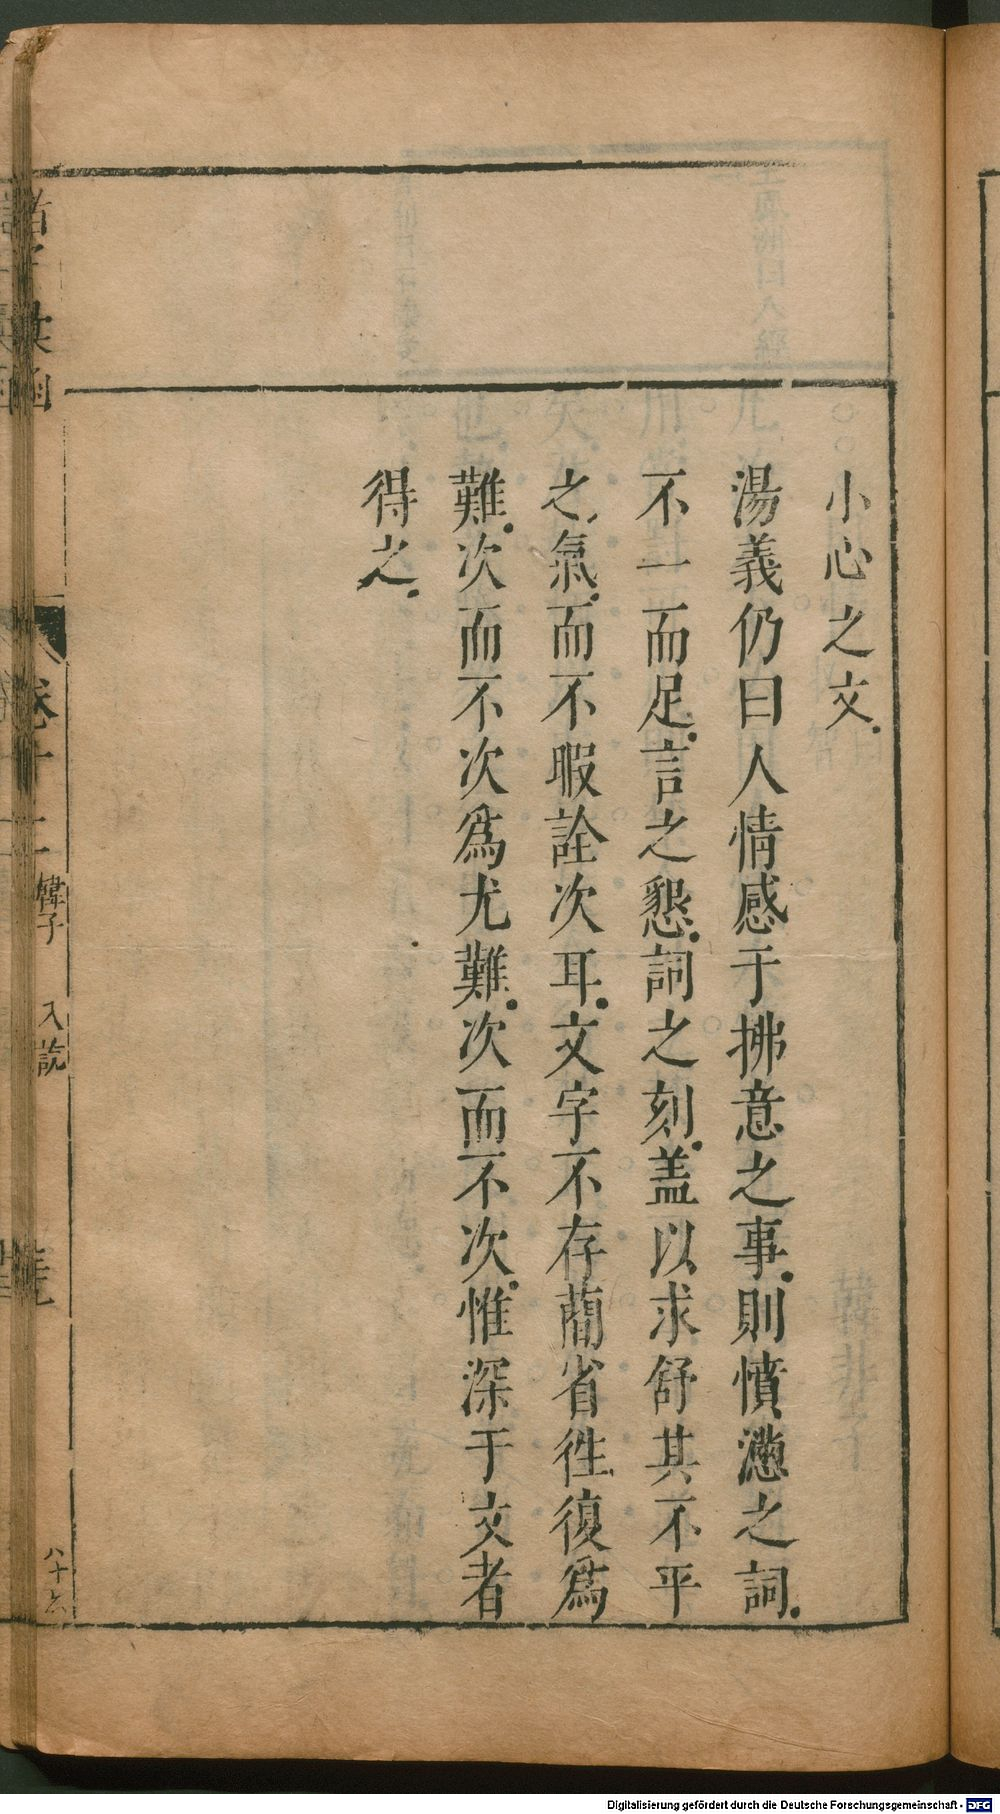 小心之文．
湯義仍曰人情感于拂意之事．則憤懣之詞．
不一而足．言之懇．詞之刻．盖以求舒其不平
之氣．而不暇詮次耳．文字不存蕳省徃復爲
難．次而不次爲尤難．次而不次．惟深于文者
得之．
諸子彙函
卷十二
韓子
八說
八十六
Digitalisierung gefördert durch die Deutsche Forschungsgemeinschaft - DFG